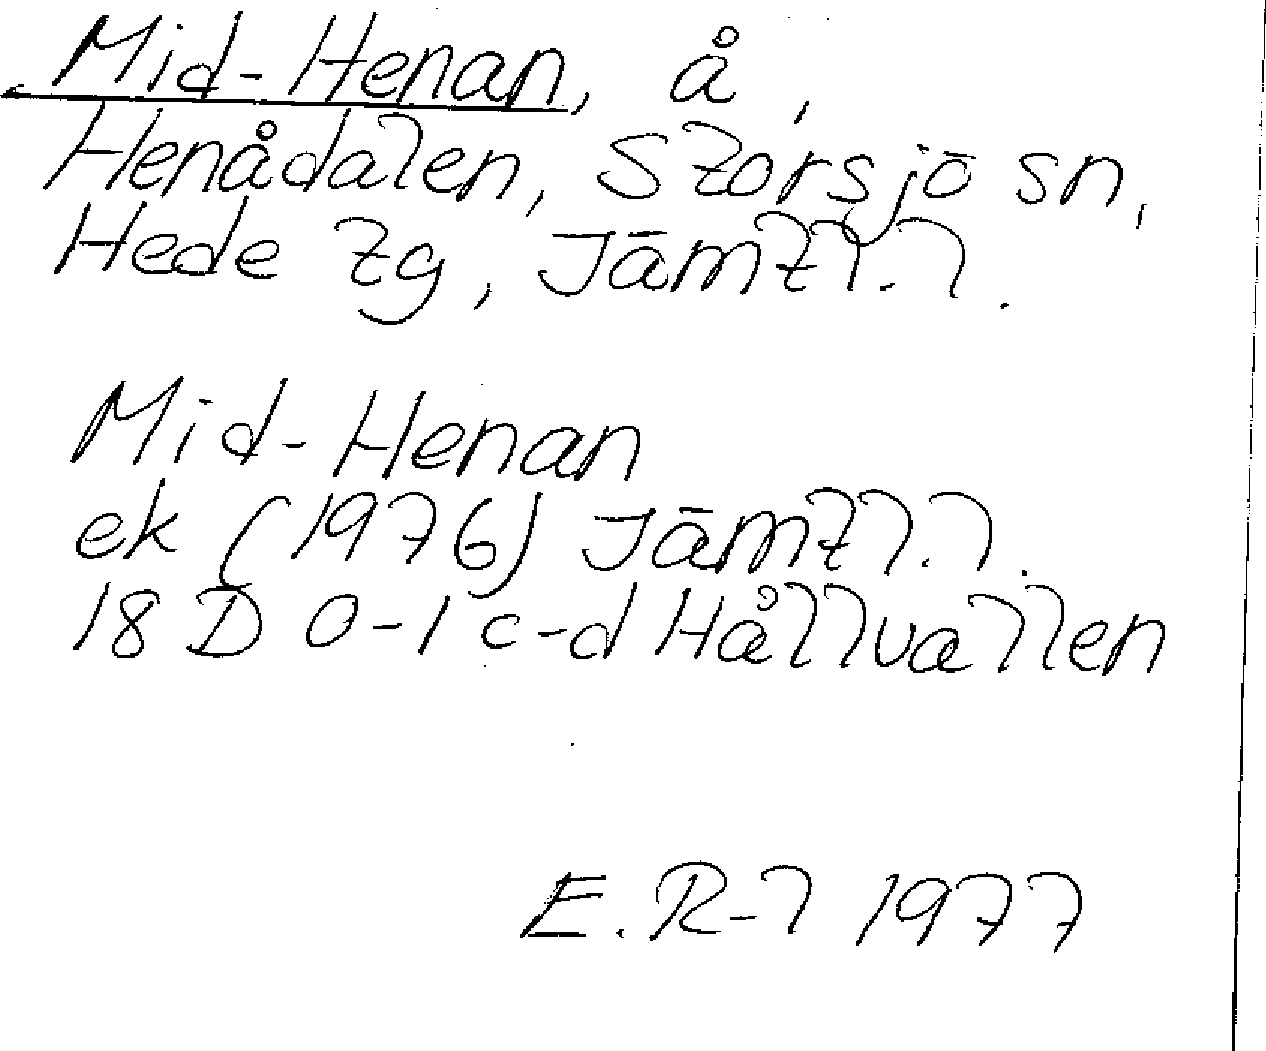 Mid-Henan, å,
Henådalen, Storsjö sn,
Hede tg, Jämtl.l.
Mid-Henan
ek (1976) Jämtl.l.
18 D 0-1 c-d Hållvallen
E. R-l 1977